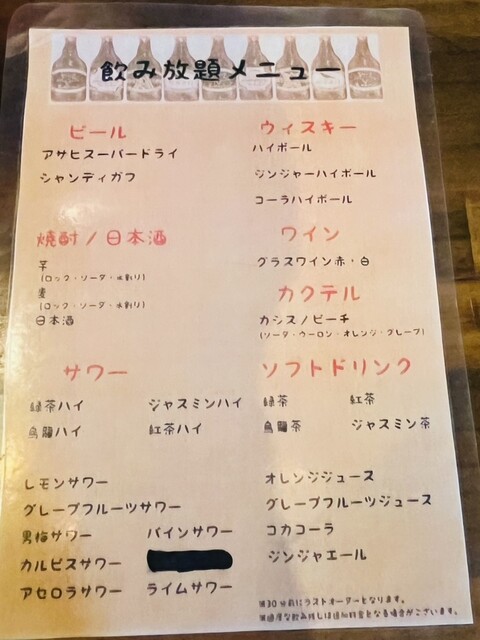 飲み放題メニュー
ビール
アサヒスーパードライ
シャンディガフ
焼酎/日本酒
芋
(ロック・ソーダ・水割り)
麦
(ロック・ソーダ・水割り)
日本酒
サワー
緑茶ハイ ジャスミンハイ
烏龍ハイ 紅茶ハイ
レモンサワー
グレープフルーツサワー
男梅サワー パインサワー
カルピスサワー
アセロラサワー ライムサワー
ウィスキー
ハイボール
ジンジャーハイボール
コーラハイボール
ワイン
グラスワイン赤・白
カクテル
カシス/ピーチ
(ソーダ・ウーロン・オレンジ・グレープ)
ソフトドリンク
緑茶 紅茶
烏龍茶 ジャスミン茶
オレンジジュース
グレープフルーツジュース
コカコーラ
ジンジャエール
※30分前にラストオーダーとなります。
※過度な飲み残しは追加料金となる場合がございます。